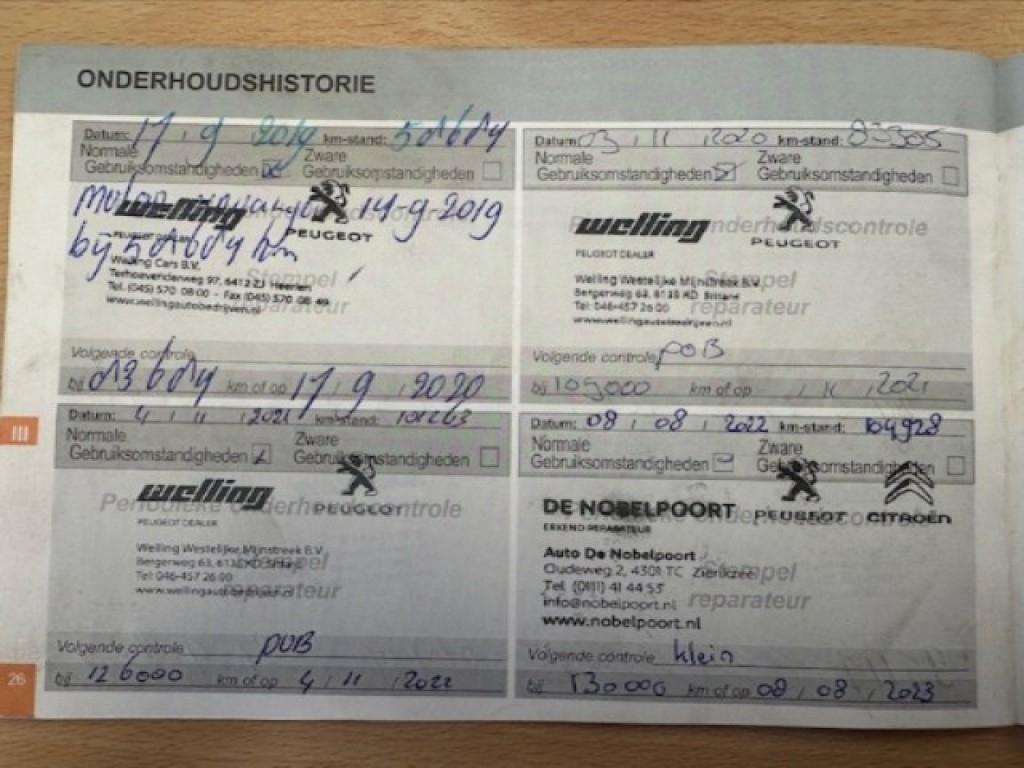 ONDERHOUDSHISTORIE
Datum: 17 / 9 / 2019 km-stand:
Normale Gebruiksomstandigheden
Zware Gebruiksomstandigheden
14-9-2019
bij km
welling
PEUGEOT
PEUGEOT DEALER
Welling Cars B.V.
Terhoevenderweg 97, 6412 ZJ Heerlen
Tel. (045) 570 08 00 - Fax (045) 570 08 49
www.wellingautobedrijven.nl
Stempel
reparateur
Volgende controle
bij km of op 17 / 9 / 2020
Datum: 03 / 11 / 2020 km-stand: 83305
Normale Gebruiksomstandigheden
Zware Gebruiksomstandigheden
Periodieke onderhoudscontrole
welling
PEUGEOT
PEUGEOT DEALER
Welling Westelijke Mijnstreek B.V.
Bergerweg 63, 6135 KD Sittard
Tel: 046-457 26 00
Stempel
reparateur
Volgende controle POB
bij 109000 km of op / 11 / 2021
Datum: 4 / 11 / 2021 km-stand: 101263
Normale Gebruiksomstandigheden
Zware Gebruiksomstandigheden
Periodieke onderhoudscontrole
welling
PEUGEOT
PEUGEOT DEALER
Welling Westelijke Mijnstreek B.V.
Bergerweg 63, 6135 KD Sittard
Tel: 046-457 26 00
Stempel
reparateur
Volgende controle POB
bij 126000 km of op 4 / 11 / 2022
Datum: 08 / 08 / 2022 km-stand: 104928
Normale Gebruiksomstandigheden
Zware Gebruiksomstandigheden
DE NOBELPOORT
ERKEND REPARATEUR
PEUGEOT CITROËN
Auto De Nobelpoort
Oudeweg 2, 4301 TC Zierikzee
Tel. (0111) 41 44 53
info@nobelpoort.nl
www.nobelpoort.nl
Stempel
reparateur
Volgende controle klein
bij 130000 km of op 08 / 08 / 2023
III
26